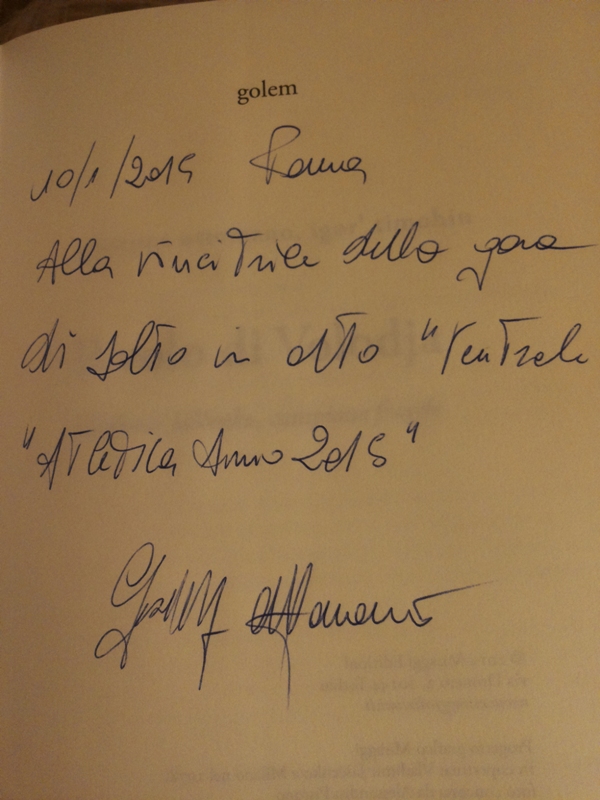 golem
10/1/2015 Roma
Alla vincitrice della gara
di salto in alto "Ventrale
"Atletica Anno 2015"